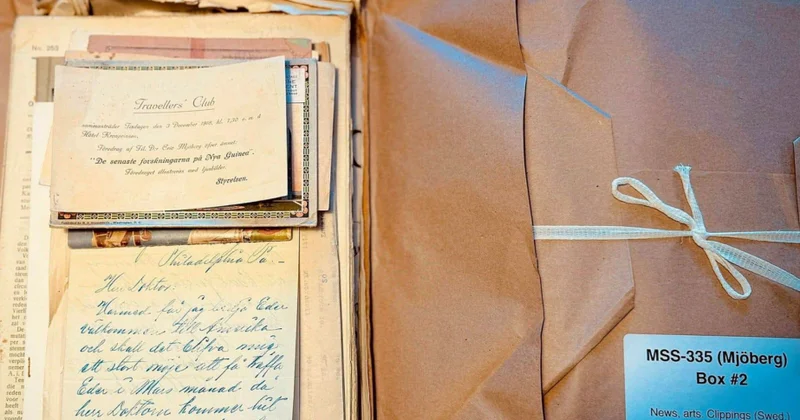 No.
Travellers' Club
sammanträder Tisdagen den 3 December kl. 7,30 e. m. å
Hôtel Kronprinsen.
Föredrag af Fil. D:r Eric Mjöberg öfver ämnet:
"De senaste forskningarna på Nya Guinea".
Föredraget illustreras med ljusbilder.
Styrelsen.
Philadelphia Pa.—
Herr Doktor:
Härmed får jag Eder
välkommen till Amerika
och skall det blifva mig
ett stort nöje att få träffa
Eder i Mars månad då
herr Doktorn kommer hit
MSS-335 (Mjöberg)
Box #2
News, arts, Clippings (Swed.)